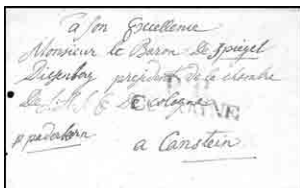 à Son Excellence
Monsieur le Baron De Spiegel
Diesenberg president de la chambre
De S. A. S. E. De Cologne
p paderborn
a Canstein